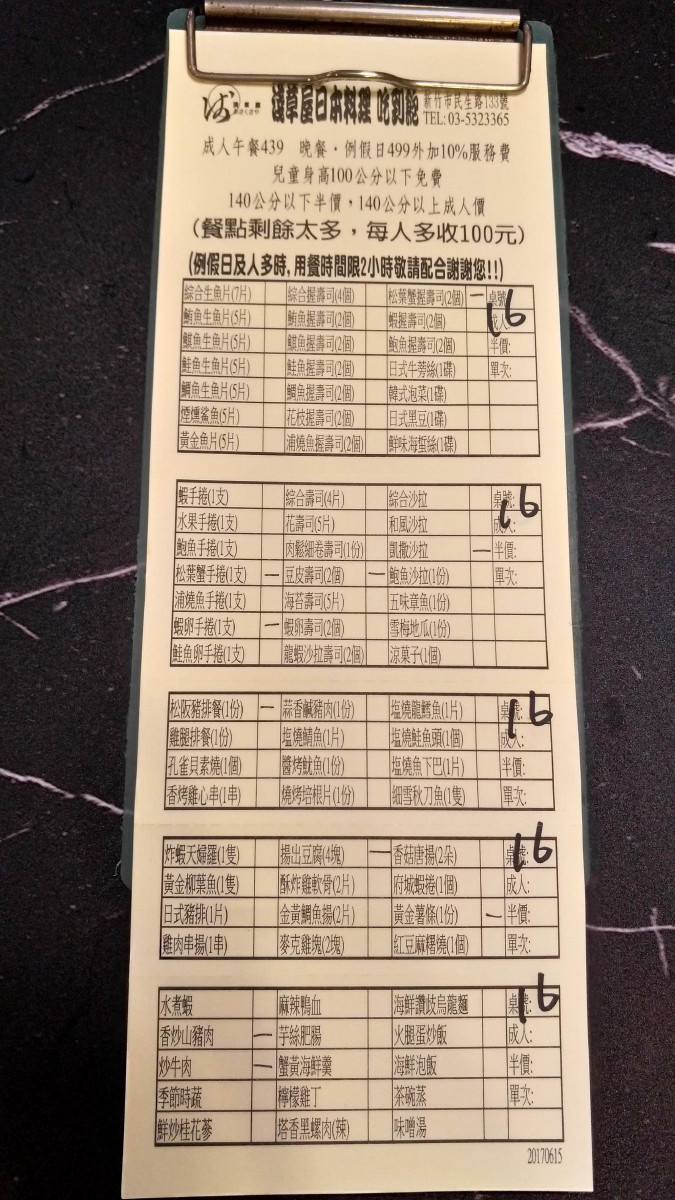 淺草屋日本料理 吃到飽 新竹市民生路133號
TEL: 03-5323365
成人午餐439 晚餐・例假日499外加10%服務費
兒童身高100公分以下免費
140公分以下半價，140公分以上成人價
（餐點剩餘太多，每人多收100元）
(例假日及人多時,用餐時間限2小時敬請配合謝謝您!!)
綜合生魚片(7片) 綜合握壽司(4個) 松葉蟹握壽司(2個) 一 桌號 16
鮪魚生魚片(5片) 鮪魚握壽司(2個) 蝦握壽司(2個) 成人:
鯕魚生魚片(5片) 鯕魚握壽司(2個) 鮑魚握壽司(2個) 半價:
鮭魚生魚片(5片) 鮭魚握壽司(2個) 日式牛蒡絲(1碟) 單次:
鯛魚生魚片(5片) 鯛魚握壽司(2個) 韓式泡菜(1碟)
煙燻鯊魚(5片) 花枝握壽司(2個) 日式黑豆(1碟)
黃金魚片(5片) 浦燒魚握壽司(2個) 鮮味海蜇絲(1碟)
蝦手捲(1支) 綜合壽司(4片) 綜合沙拉 桌號: 16
水果手捲(1支) 花壽司(5片) 和風沙拉 成人:
鮑魚手捲(1支) 肉鬆細卷壽司(1份) 凱撒沙拉 一 半價:
松葉蟹手捲(1支) 一 豆皮壽司(2個) 一 鮑魚沙拉(1份) 單次:
浦燒魚手捲(1支) 海苔壽司(5片) 五味章魚(1份)
蝦卵手捲(1支) 一 蝦卵壽司(2個) 雪梅地瓜(1份)
鮭魚卵手捲(1支) 龍蝦沙拉壽司(2個) 涼菓子(1個)
松阪豬排餐(1份) 一 蒜香鹹豬肉(1份) 塩燒龍鱈魚(1片) 桌號: 16
雞腿排餐(1份) 塩燒鯖魚(1片) 塩燒鮭魚頭(1個) 成人:
孔雀貝素燒(1個) 醬烤魷魚(1份) 塩燒魚下巴(1片) 半價:
香烤雞心串(1串) 燒烤培根片(1份) 細雪秋刀魚(1隻) 單次:
炸蝦天婦羅(1隻) 揚出豆腐(4塊) 一 香菇唐揚(2朵) 桌號: 16
黃金柳葉魚(1隻) 酥炸雞軟骨(2片) 府城蝦捲(1個) 成人:
日式豬排(1片) 金黃鯛魚揚(2片) 黃金薯條(1份) 一 半價:
雞肉串揚(1串) 麥克雞塊(2塊) 紅豆麻糬燒(1個) 單次:
水煮蝦 麻辣鴨血 海鮮讚歧烏龍麵 桌號: 16
香炒山豬肉 一 芋絲肥腸 火腿蛋炒飯 成人:
炒牛肉 一 蟹黃海鮮羹 海鮮泡飯 半價:
季節時蔬 檸檬雞丁 茶碗蒸 單次:
鮮炒桂花蔘 塔香黑螺肉(辣) 味噌湯
20170615